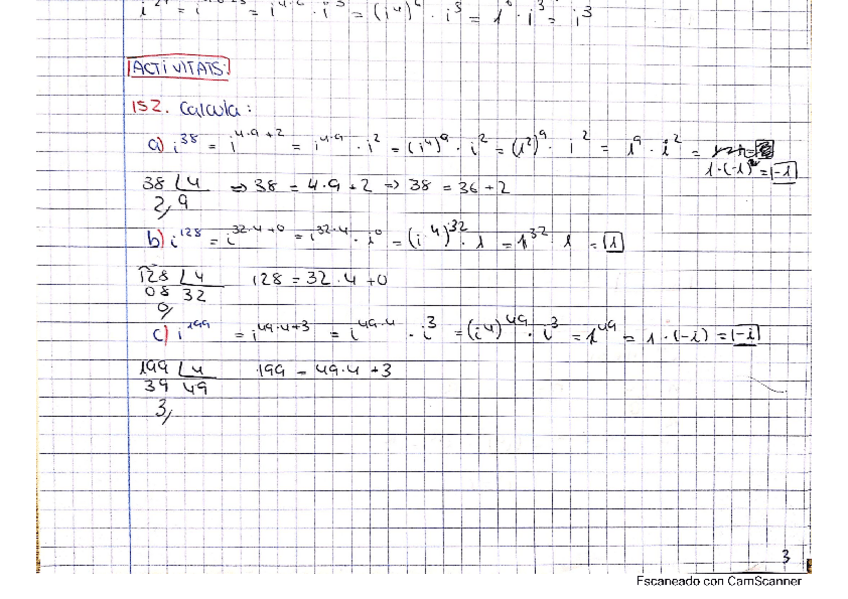 = i⁴·⁶ · i³ = (i⁴)⁶ · i³ = 1⁶ · i³ = i³
ACTIVITATS:
152. Calcula:
a) i³⁸ = i⁴·⁹⁺² = i⁴·⁹ · i² = (i⁴)⁹ · i² = (1²)⁹ · i² = 1⁹ · i² =
1·(-1) = -1
38 4 => 38 = 4·9 + 2 => 38 = 36 + 2
2, 9
b) i¹²⁸ = i³²·⁴⁺⁰ = i³²·⁴ · i⁰ = (i⁴)³² · 1 = 1³² · 1 = 1
128 4 128 = 32·4 + 0
08 32
0,
c) i¹⁹⁹ = i⁴⁹·⁴⁺³ = i⁴⁹·⁴ · i³ = (i⁴)⁴⁹ · i³ = 1⁴⁹ = 1·(-i) = -i
199 4 199 = 49·4 + 3
39 49
3,
3
Escaneado con CamScanner